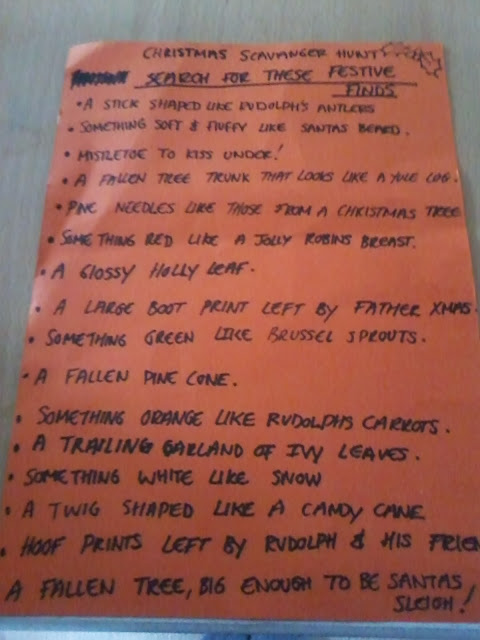 CHRISTMAS SCAVANGER HUNT
SEARCH FOR THESE FESTIVE
FINDS
• A STICK SHAPED LIKE RUDOLPH'S ANTLERS
• SOMETHING SOFT & FLUFFY LIKE SANTAS BEARD.
• MISTLETOE TO KISS UNDER!
• A FALLEN TREE TRUNK THAT LOOKS LIKE A YULE LOG.
• PINE NEEDLES LIKE THOSE FROM A CHRISTMAS TREE
• SOMETHING RED LIKE A JOLLY ROBINS BREAST.
• A GLOSSY HOLLY LEAF.
• A LARGE BOOT PRINT LEFT BY FATHER XMAS.
• SOMETHING GREEN LIKE BRUSSEL SPROUTS.
• A FALLEN PINE CONE.
• SOMETHING ORANGE LIKE RUDOLPHS CARROTS.
• A TRAILING GARLAND OF IVY LEAVES.
• SOMETHING WHITE LIKE SNOW
• A TWIG SHAPED LIKE A CANDY CANE
• HOOF PRINTS LEFT BY RUDOLPH & HIS FRIEN
A FALLEN TREE, BIG ENOUGH TO BE SANTAS
SLEIGH!